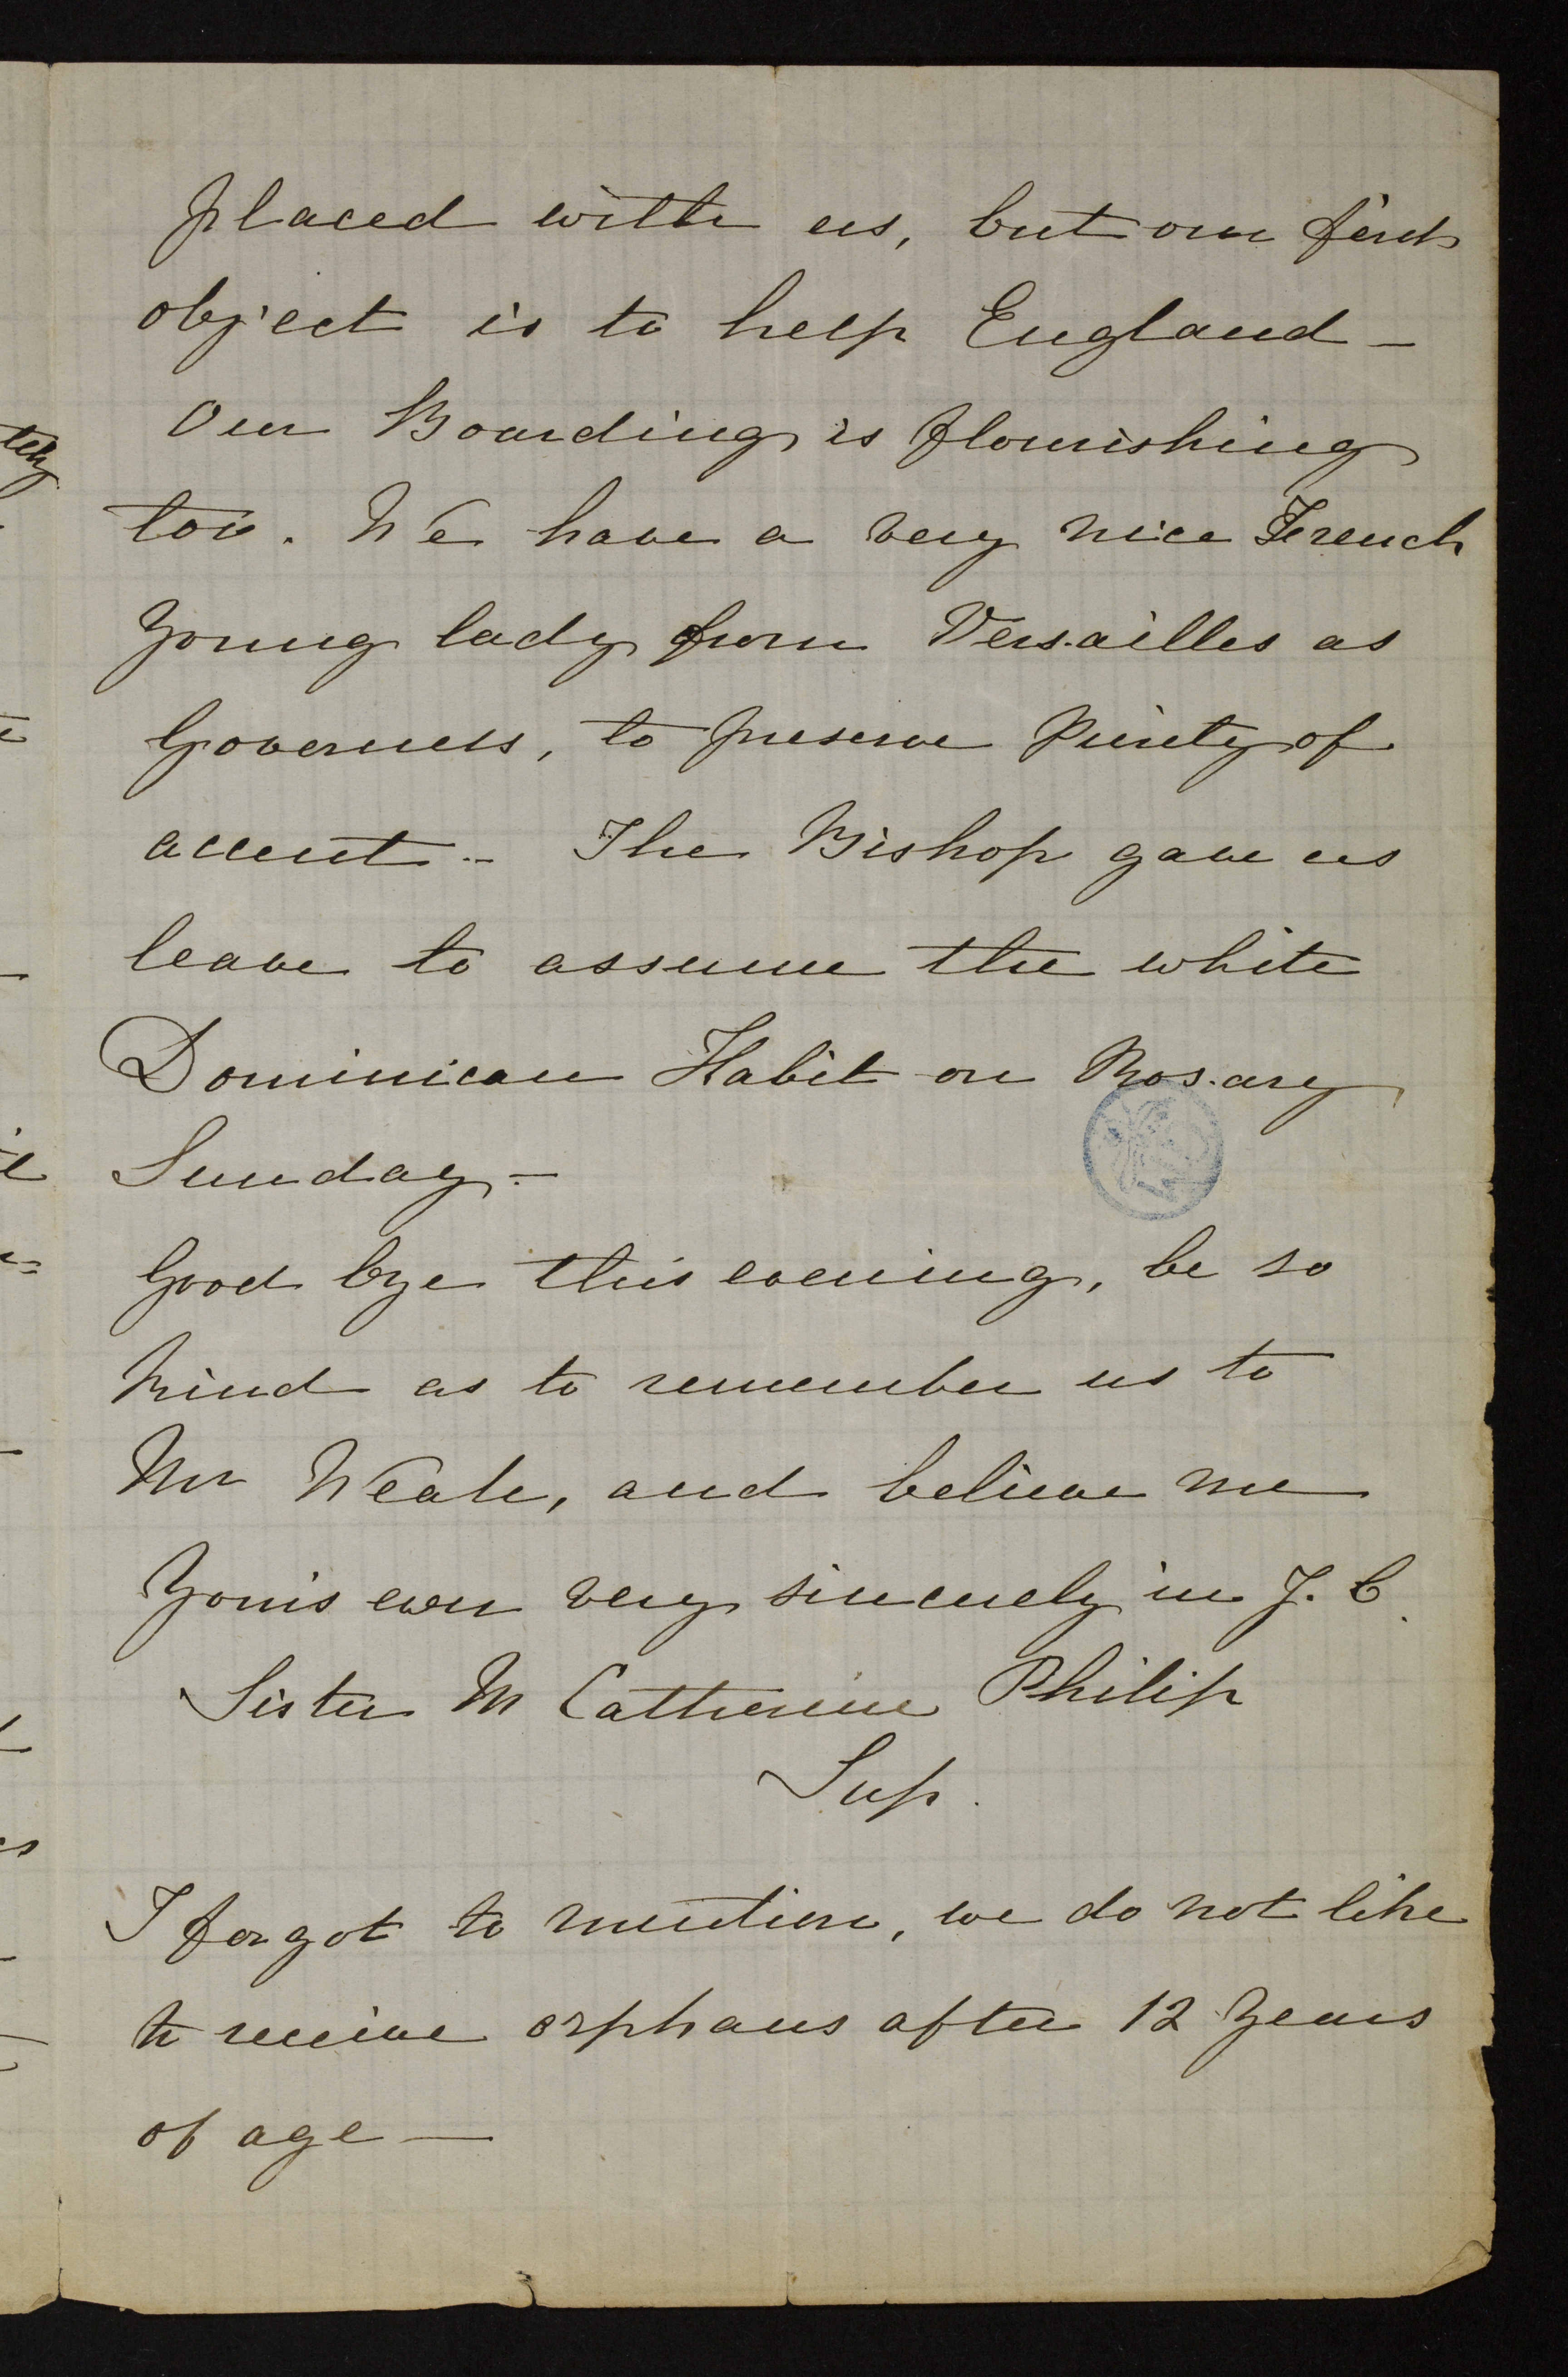 placed with us, but our first
object is to help England –
Our Boarding is flourishing
too. We have a very nice French
Young lady from Versailles as
Governess, to preserve Purity of
accent – The Bishop gave us
leave to assume the white
Dominican Habit on Rosary
Sunday –
Good bye this evening, be so
kind as to remember us to
Mr Weale, and believe me
Yours ever very sincerely in J. C.
Sister M Catherine Philip
Sup.
I forgot to mention, we do not like
to receive orphans after 12 Years
of age —